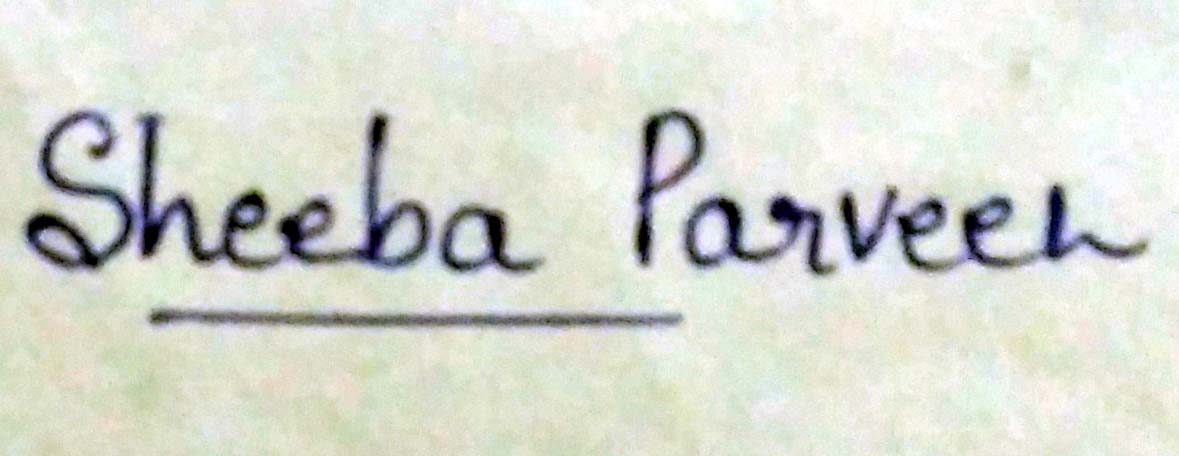 Sheeba Parveen